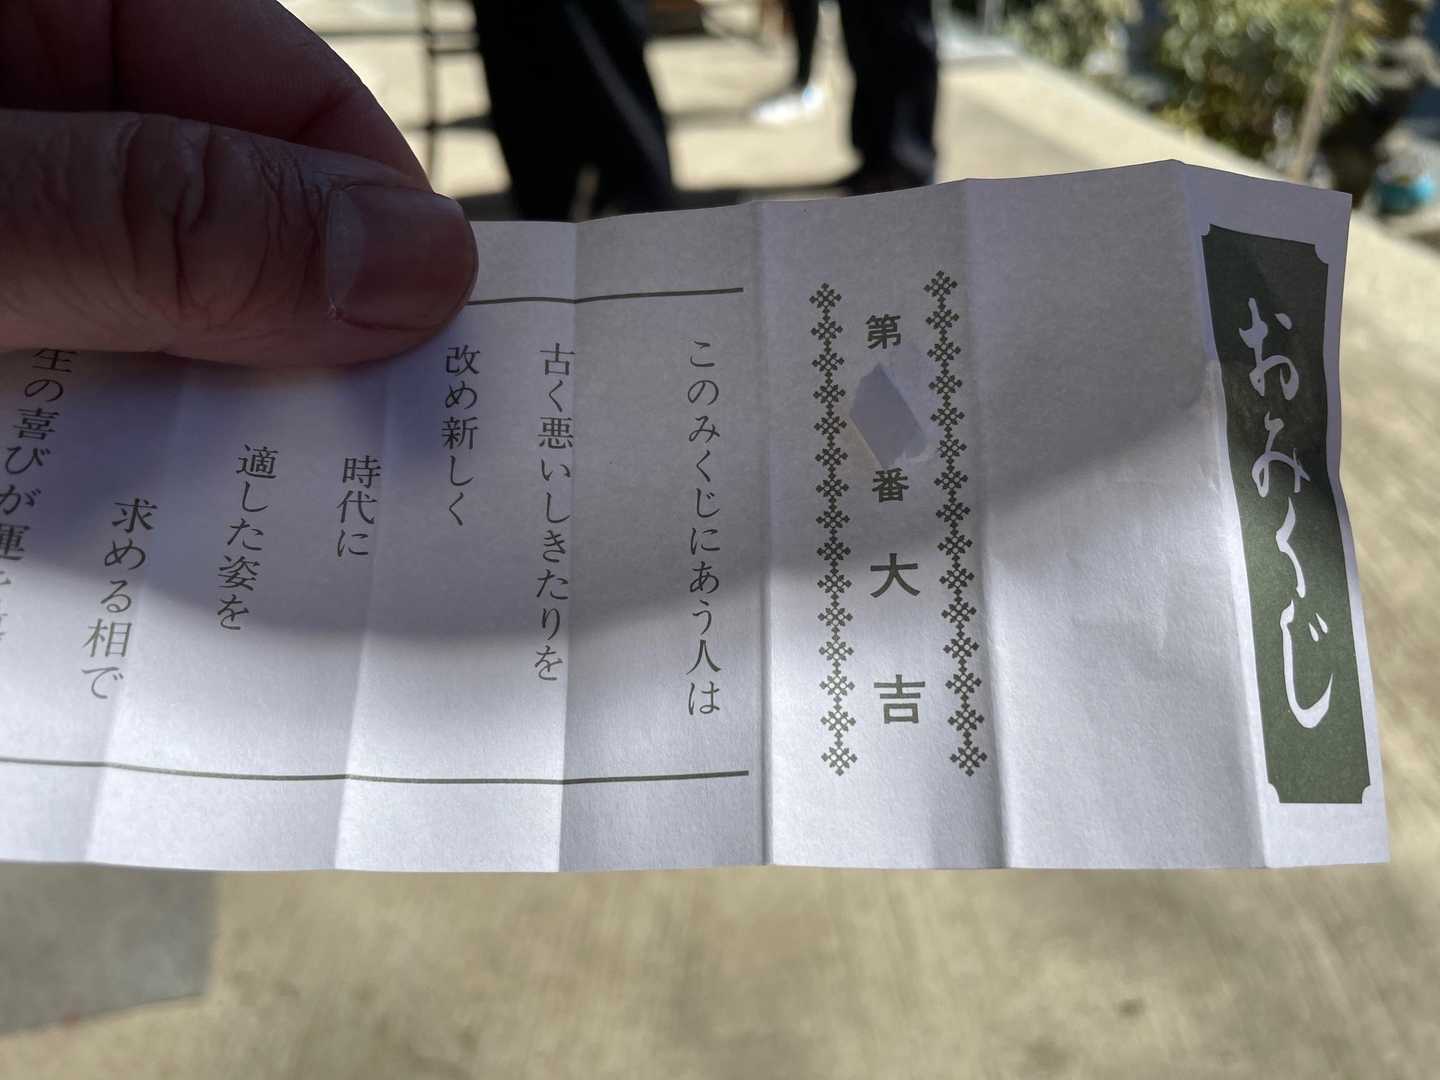 おみくじ
第 番 大吉
このみくじにあう人は
古く悪いしきたりを
改め新しく
時代に
適した姿を
求める相で
生の喜びが運を